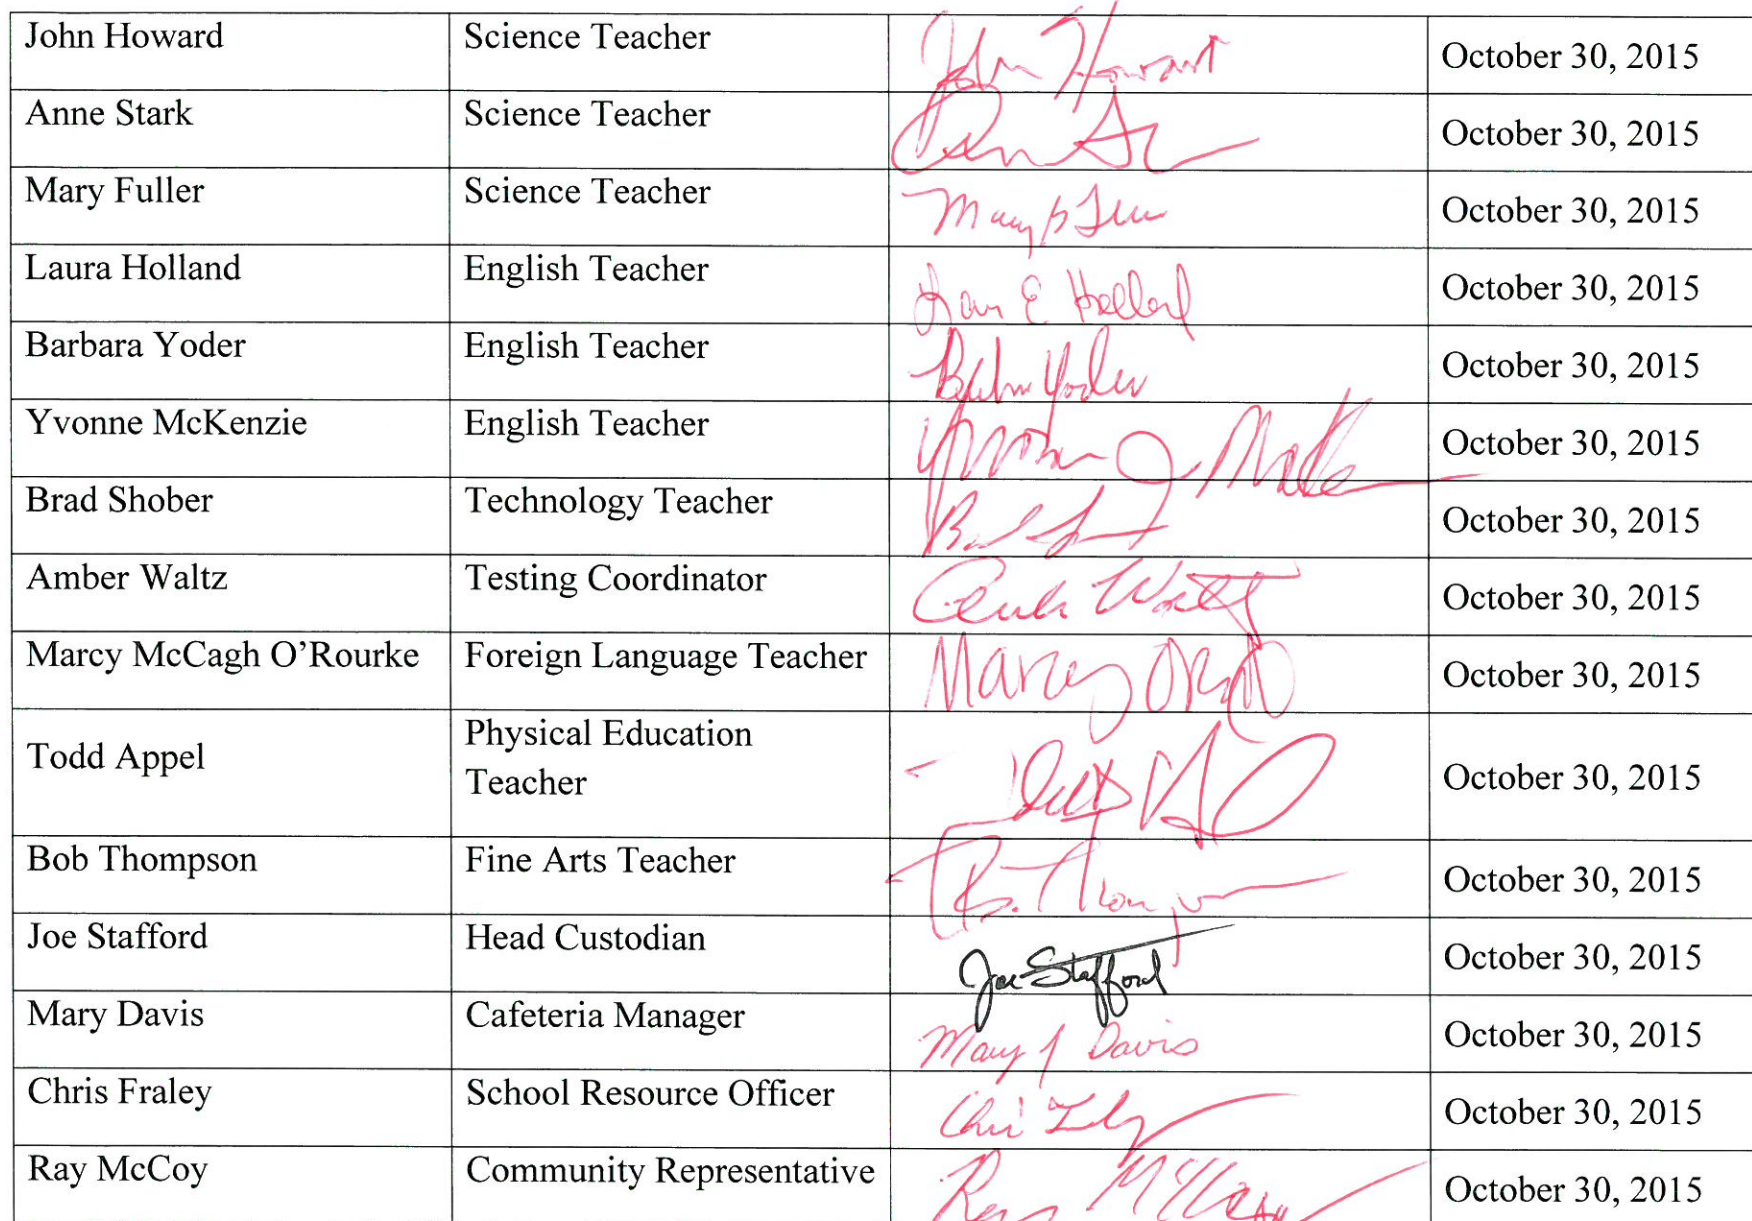 John Howard Science Teacher John Howard October 30, 2015
Anne Stark Science Teacher October 30, 2015
Mary Fuller Science Teacher Mary October 30, 2015
Laura Holland English Teacher E. Holland October 30, 2015
Barbara Yoder English Teacher Yoder October 30, 2015
Yvonne McKenzie English Teacher October 30, 2015
Brad Shober Technology Teacher October 30, 2015
Amber Waltz Testing Coordinator October 30, 2015
Marcy McCagh O'Rourke Foreign Language Teacher Marcy October 30, 2015
Physical Education
Todd Appel Teacher October 30, 2015
Bob Thompson Fine Arts Teacher B. October 30, 2015
Joe Stafford Head Custodian Joe Stafford October 30, 2015
Mary Davis Cafeteria Manager Mary J Davis October 30, 2015
Chris Fraley School Resource Officer October 30, 2015
Ray McCoy Community Representative Ray McCoy October 30, 2015